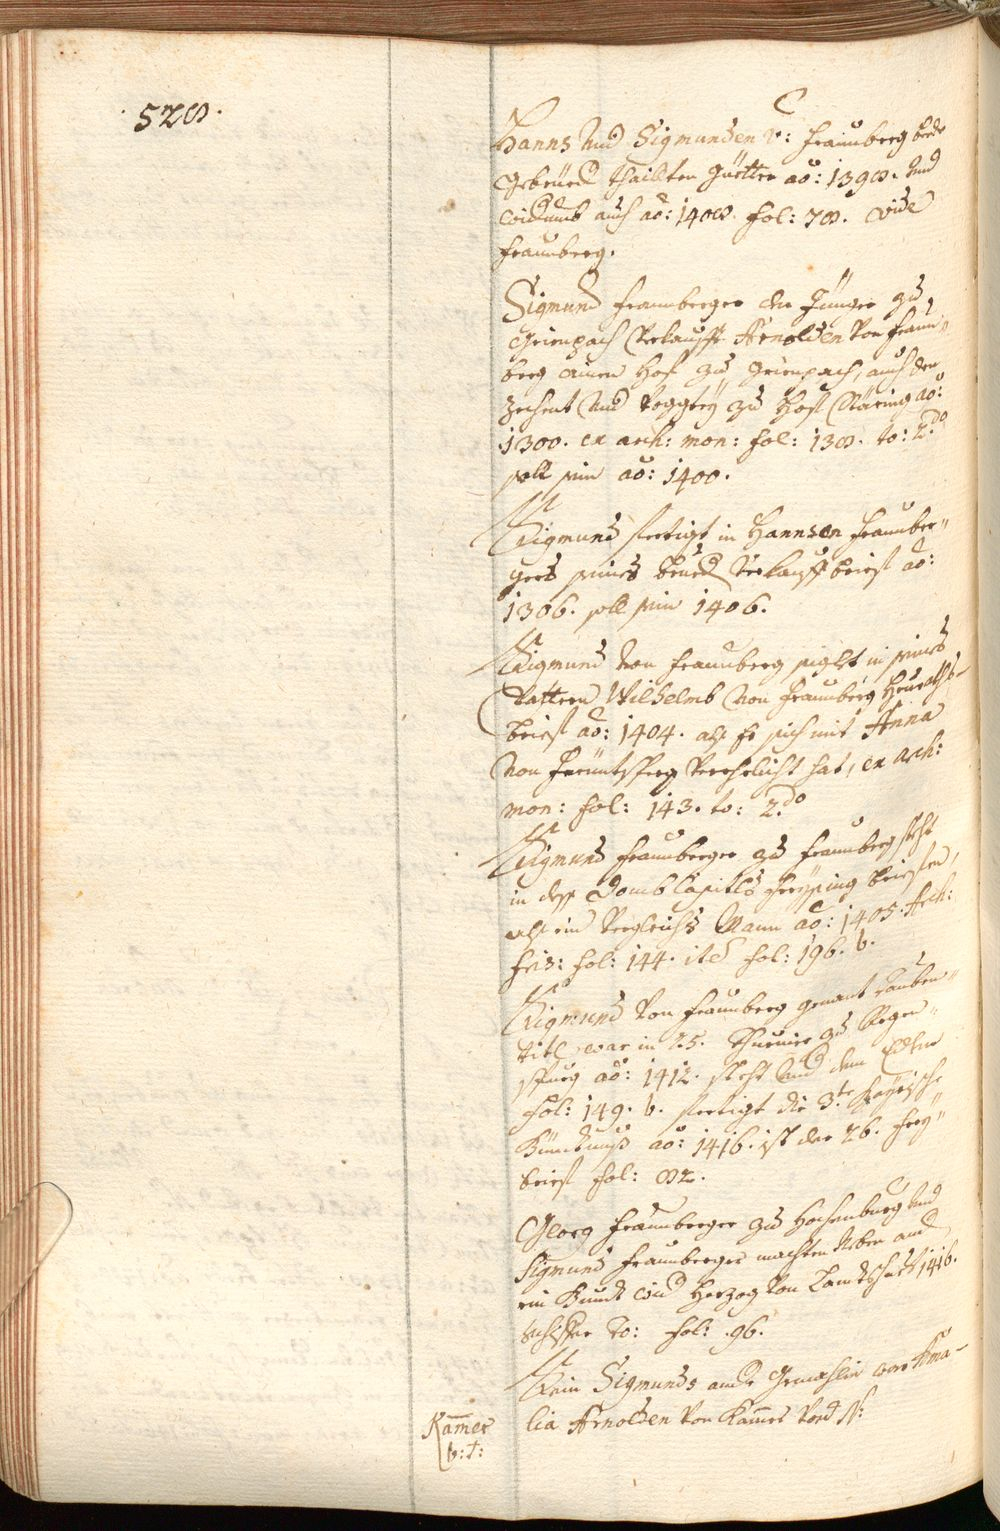 . 528 .
C
Hanns und Sigmunden v: Fraunberg bede
Gebrüed: thaillten Güetter aõ: 1398. und
widumb auch aõ: 1408. fol: 78. vide
Fraunberg.
Sigmund Fraunberger der Jünger zu
Grienpach verkaufft Arnolden von Fraun=
berg ainen Hof zu Grienpach, auch den
Zechent und Vogtey zu Hof aõ:
1300. ex arch: mon: fol: 138. to: 2.do
soll sein aõ: 1400.
Sigmund fertigt in Hannsen Fraunber=
gers seines brued: verkauffbrief aõ:
1306. soll sein 1406.
Sigmund von Fraunberg siglt in seines
Vattern Wilhelmb von Fraunberg Heuraths=
brief aõ: 1404. als Er sich mit Anna
von verehelicht hat, ex Arch:
mon: fol: 143. to: 2.do
Sigmund Fraunberger zu Fraunberg steht
in dess Domb Capitls Freysing briefen,
als ein Vergleichs Mann aõ: 1405. Arch:
Fris: fol: 144. ite fol: 196. b.
Sigmund von Fraunberg genant
war in 25. Thurnier zu Regen=
spurg aõ: 1412. steht und: den Edlen
fol: 149. b. fertigt die 3.te Bayrische
Bündtnuß aõ: 1416. ist der 26. Frey=
brief fol: 82.
Georg Fraunberger zu Hochenburg und
Sigmund Fraunberger machten neben and:
ein Bundt wid: Herzog von Landtshuet 1416.
to: fol: 96.
Sein Sigmunds ande Gemahlin ware Ama=
lia Arnolden von Kamer
Kamer
v: t: